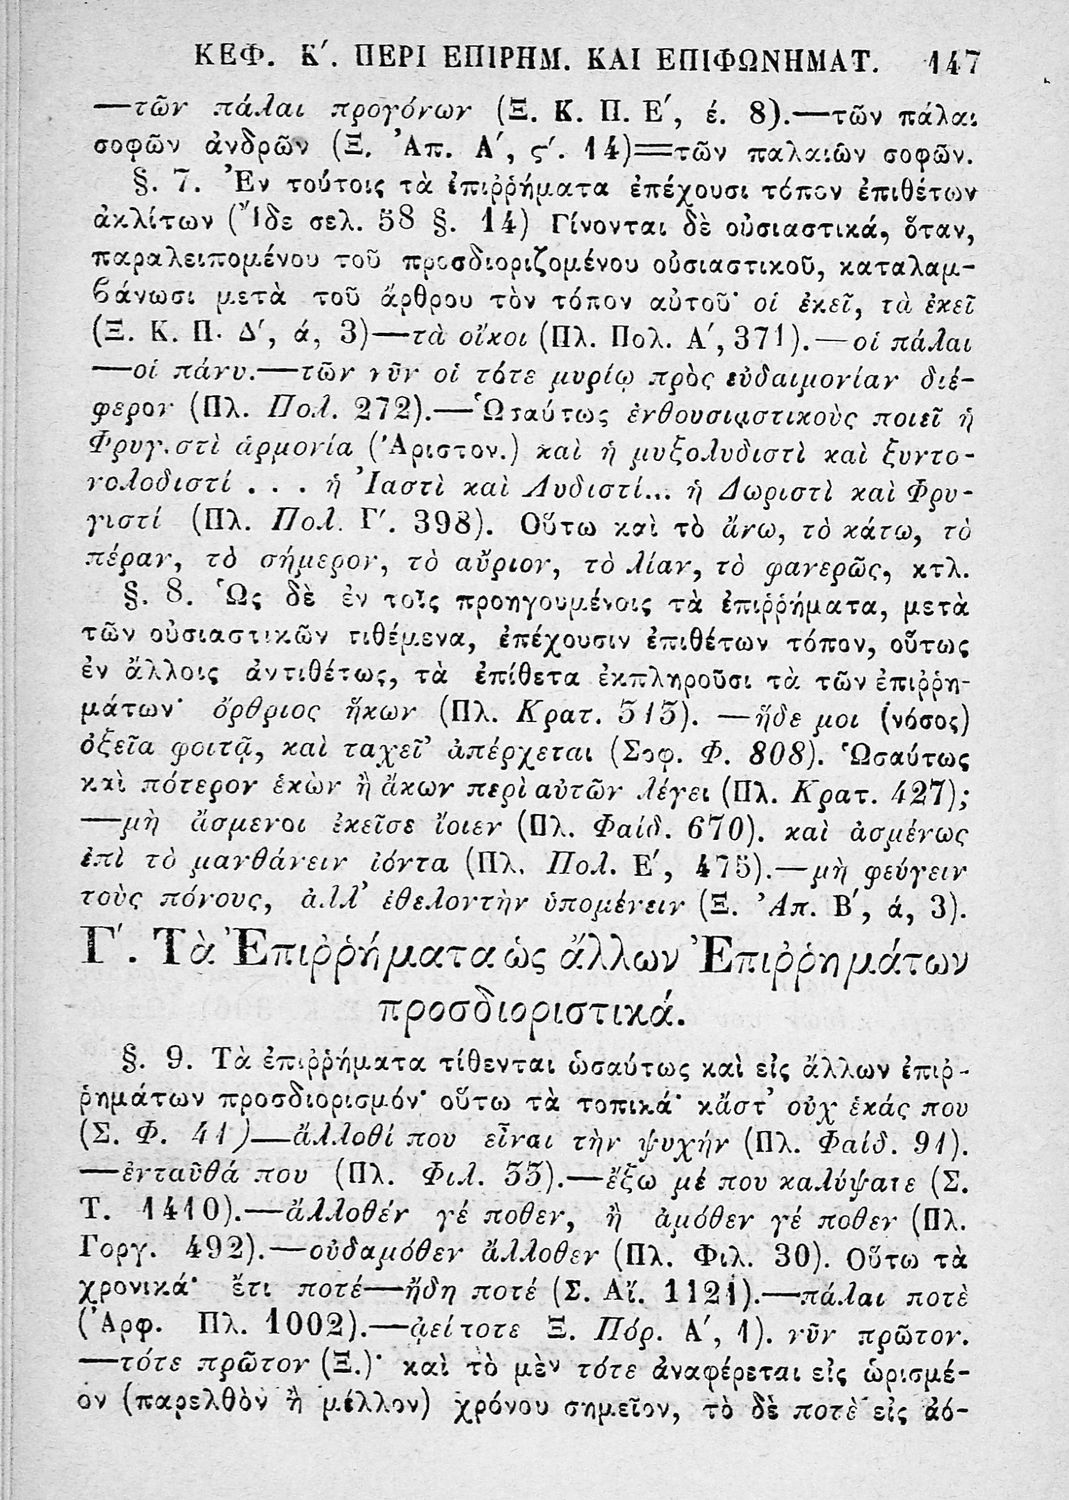 ΚΕΦ. Κ΄. ΠΕΡΙ ΕΠΙΡΗΜ. ΚΑΙ ΕΠΙΦΩΝΗΜΑΤ. 147
—τῶν πάλαι προγόνων (Ξ. Κ. Π. Ε΄, έ. 8).—τῶν πάλαι
σοφῶν ἀνδρῶν (Ξ. Ἀπ. Α΄, ς΄. 14)=τῶν παλαιῶν σοφῶν.
§. 7. Ἐν τούτοις τὰ ἐπιῤῥήματα ἐπέχουσι τόπον ἐπιθέτων
ἀκλίτων (Ἴδε σελ. 58 §. 14) Γίνονται δὲ οὐσιαστικά, ὅταν,
παραλειπομένου τοῦ προσδιοριζομένου οὐσιαστικοῦ, καταλαμ-
βάνωσι μετὰ τοῦ ἄρθρου τὸν τόπον αὐτοῦ· οἱ ἐκεῖ, τὰ ἐκεῖ
(Ξ. Κ. Π. Δ΄, ά, 3)—τὰ οἴκοι (Πλ. Πολ. Α΄, 371).—οἱ πάλαι
—οἱ πάνυ.—τῶν νῦν οἱ τότε μυρίῳ πρὸς εὐδαιμονίαν διέ-
φερον (Πλ. Πολ. 272).—Ὡσαύτως ἐνθουσιαστικοὺς ποιεῖ ἡ
Φρυγιστὶ ἁρμονία (Ἀριστον.) καὶ ἡ μυξολυδιστὶ καὶ ξυντο-
νολοδιστί . . . ἡ Ἰαστὶ καὶ Λυδιστί... ἡ Δωριστὶ καὶ Φρυ-
γιστί (Πλ. Πολ. Γ΄. 398). Οὕτω καὶ τὸ ἄνω, τὸ κάτω, τὸ
πέραν, τὸ σήμερον, τὸ αὔριον, τὸ λίαν, τὸ φανερῶς, κτλ.
§. 8. Ὡς δὲ ἐν τοῖς προηγουμένοις τὰ ἐπιῤῥήματα, μετὰ
τῶν οὐσιαστικῶν τιθέμενα, ἐπέχουσιν ἐπιθέτων τόπον, οὕτως
ἐν ἄλλοις ἀντιθέτως, τὰ ἐπίθετα ἐκπληροῦσι τὰ τῶν ἐπιῤῥη-
μάτων· ὄρθριος ἥκων (Πλ. Κρατ. 313). —ἥδε μοι (νόσος)
ὀξεῖα φοιτᾷ, καὶ ταχεῖ᾽ ἀπέρχεται (Σοφ. Φ. 808). Ὡσαύτως
καὶ πότερον ἑκὼν ἢ ἄκων περὶ αὐτῶν λέγει (Πλ. Κρατ. 427);
—μὴ ἄσμενοι ἐκεῖσε ἴοιεν (Πλ. Φαίδ. 670). καὶ ἀσμένως
ἐπὶ τὸ μανθάνειν ἰόντα (Πλ. Πολ. Ε΄, 475).—μὴ φεύγειν
τοὺς πόνους, ἀλλ᾽ ἐθελοντὴν ὑπομένειν (Ξ. Ἀπ. Β΄, ά, 3).
Γ΄. Τὰ Ἐπιῤῥήματα ὡς ἄλλων Ἐπιῤῥημάτων
προσδιοριστικά.
§. 9. Τὰ ἐπιῤῥήματα τίθενται ὡσαύτως καὶ εἰς ἄλλων ἐπιῤ-
ῥημάτων προσδιορισμόν· οὕτω τὰ τοπικά· κἄστ᾽ οὐχ ἑκάς που
(Σ. Φ. 41)—ἄλλοθί που εἶναι τὴν ψυχήν (Πλ. Φαίδ. 91).
—ἐνταῦθά που (Πλ. Φιλ. 33).—ἔξω μέ που καλύψατε (Σ.
Τ. 1410).—ἄλλοθέν γέ ποθεν, ἢ ἀμόθεν γέ ποθεν (Πλ.
Γοργ. 492).—οὐδαμόθεν ἄλλοθεν (Πλ. Φιλ. 30). Οὕτω τὰ
χρονικά· ἔτι ποτέ—ἤδη ποτέ (Σ. Αἴ. 1121).—πάλαι ποτὲ
(Ἀρφ. Πλ. 1002).—ἀείτοτε Ξ. Πόρ. Α΄, 1). νῦν πρῶτον.
—τότε πρῶτον (Ξ.)· καὶ τὸ μὲν τότε ἀναφέρεται εἰς ὡρισμέ-
ον (παρελθὸν ἢ μέλλον) χρόνου σημεῖον, τὸ δὲ ποτὲ εἰς ἀό-